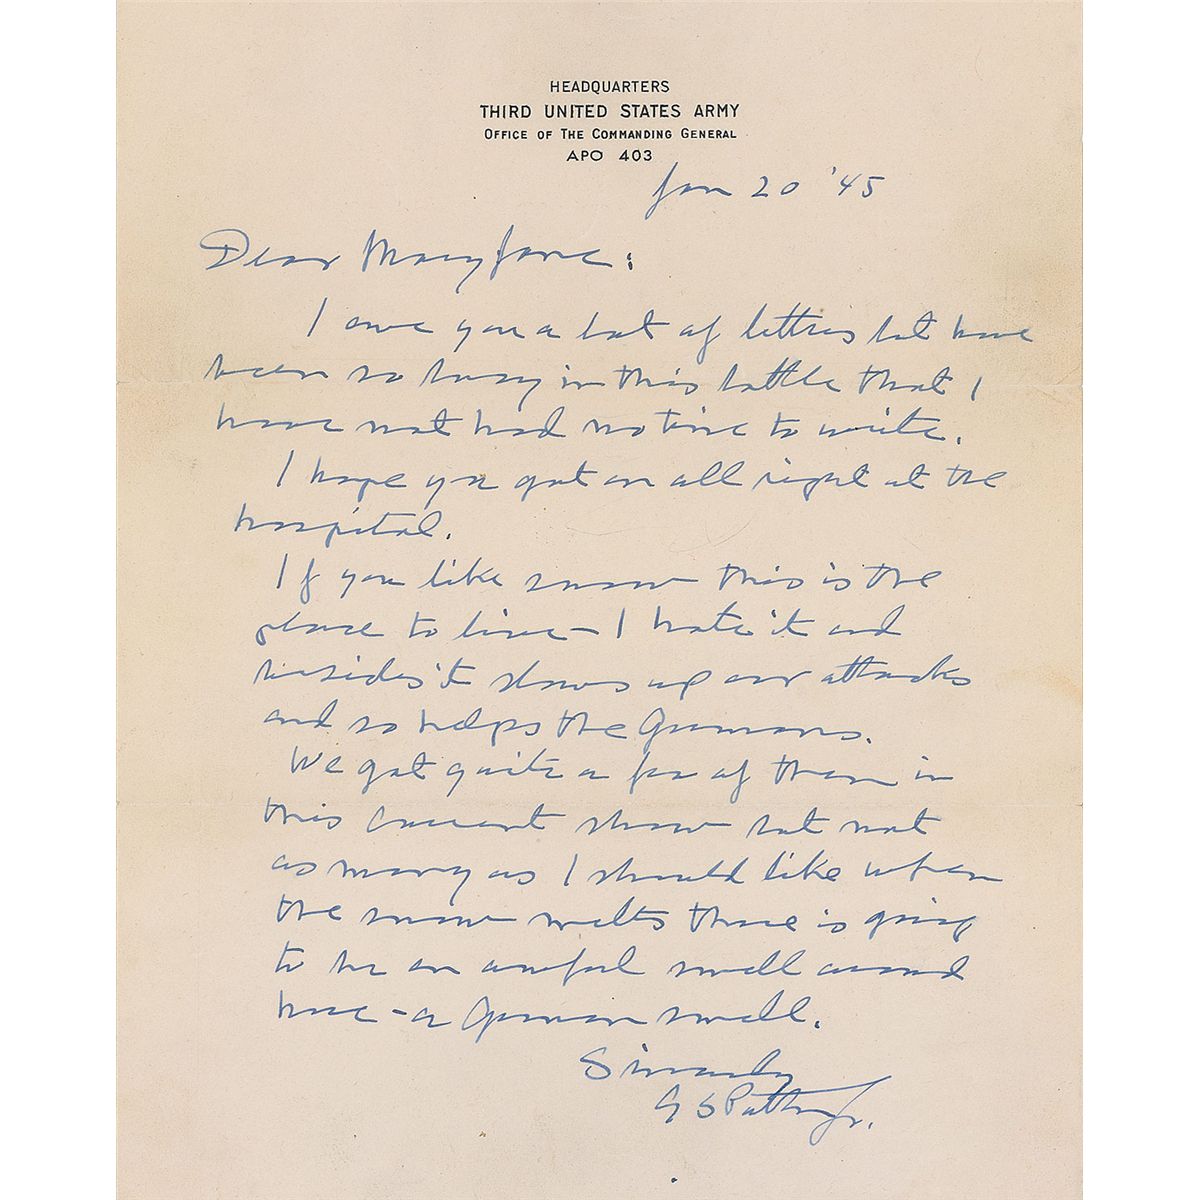 HEADQUARTERS
THIRD UNITED STATES ARMY
OFFICE OF THE COMMANDING GENERAL
APO 403
Jan 20 '45
Dear Mary Jane:
I owe you a lot of letters but have
been so busy in this battle that I
have not had no time to write.
I hope you got on all right at the
hospital.
If you like snow this is the
place to live – I hate it and
besides it slows up our attacks
and so helps the Germans.
We got quite a few of them in
this current show but not
as many as I should like when
the snow melts there is going
to be an awful smell around
here – a German smell.
Sincerely
G S Patton Jr.